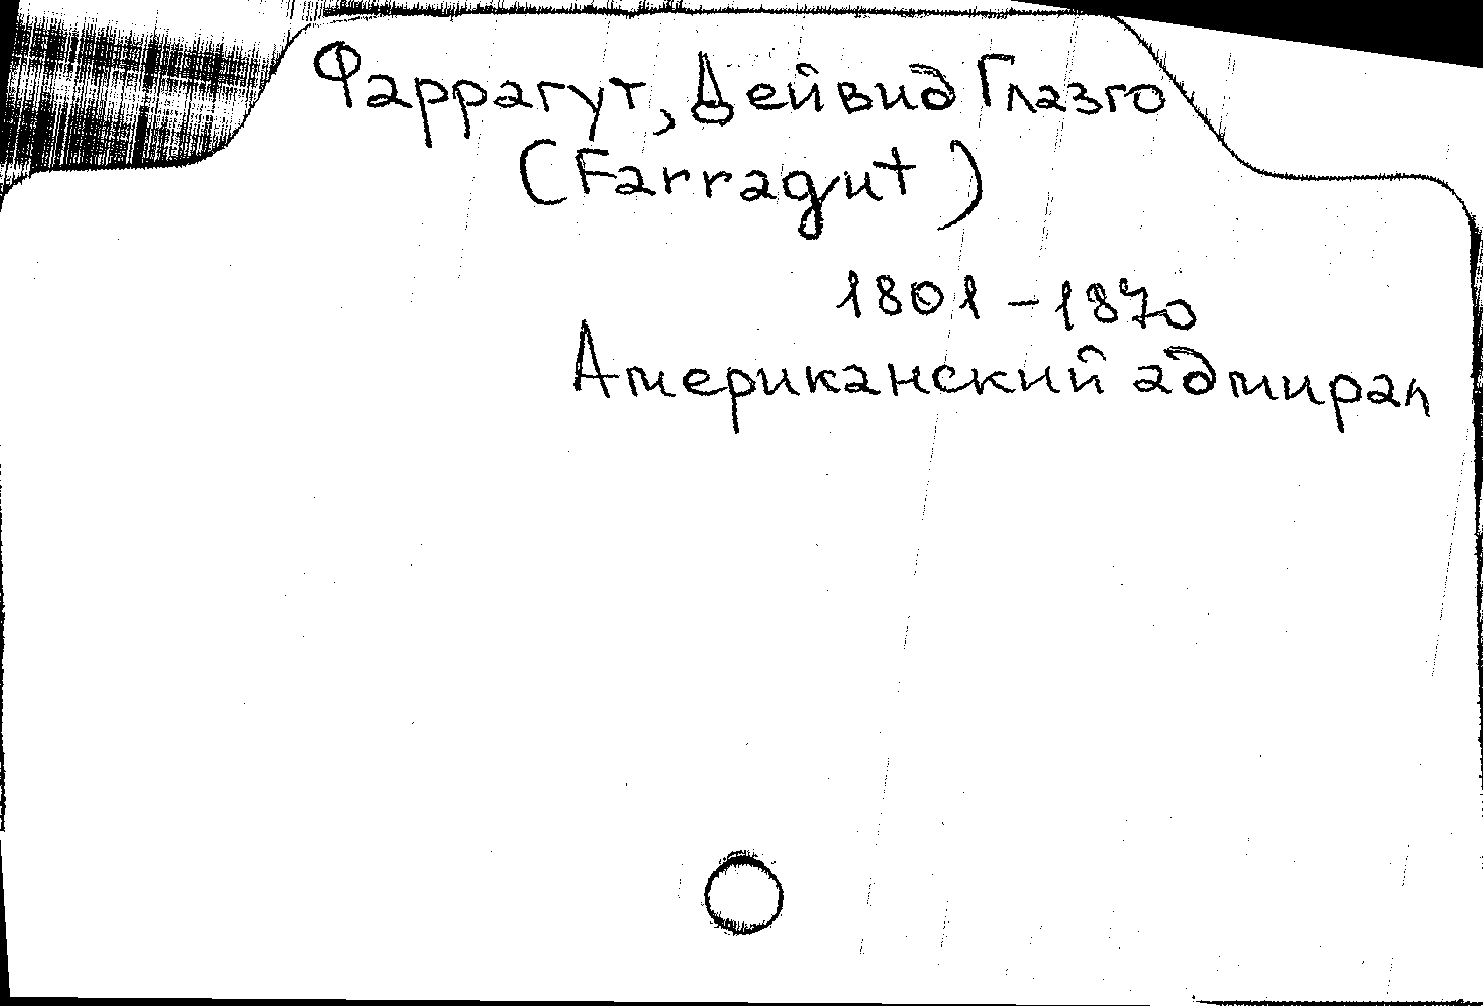 Фаррагут, Дейвид Глазго
(Farragut)
1801 – 1870
Американский адмирал